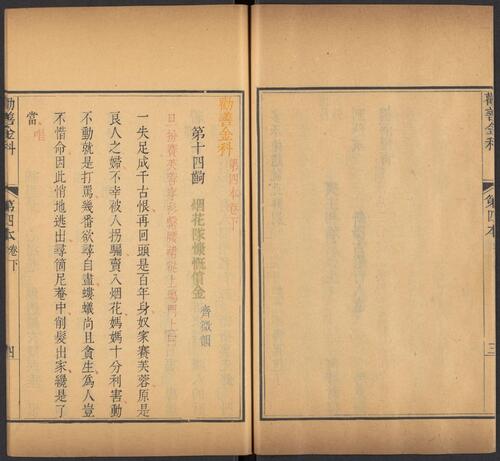 勸善金科
第四本
三
勸善金科 第四本卷下
第十四齣 烟花隊慷慨借金 齊微韻
旦扮賽芙蓉穿衫繫腰裙從上場門上白
一失足成千古恨再回頭是百年身奴家賽芙蓉原是
良人之婦不幸被人拐騙賣入烟花媽媽十分利害動
不動就是打罵幾番欲尋自盡螻蟻尚且貪生為人豈
不惜命因此悄地逃出尋箇尼菴中削髮出家纔是了
當 唱
勸善金科
第四本卷下
四